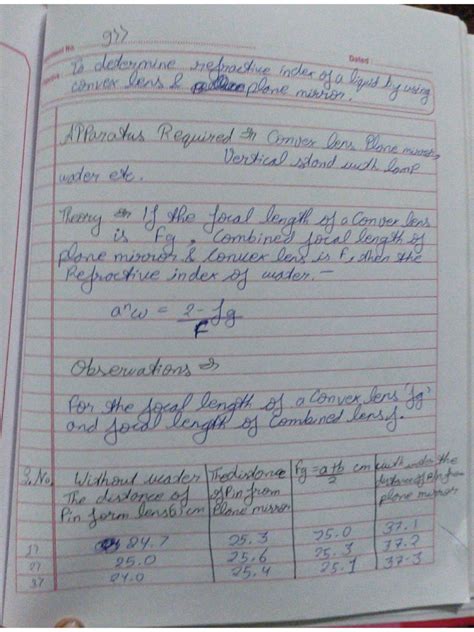 977
Dated
To determine refractive index of a liquid by using
convex lens & plane mirror.
Apparatus Required ⇒ Convex lens Plane mirror,
Vertical stand with lamp
water etc.
Theory ⇒ If the focal length of a convex lens
is Fg, Combined focal length of
plane mirror & Convex lens is F, then the
Refractive index of water. —
aⁿw = 2 - fg
F
Observations ⇒
For the focal length of a convex lens 'fg'
and focal length of combined lens f.
S.No. Without water The distance Fg = a+b/2 cm the
The distance of of Pin from distance of Pin from
Pin form lens cm Plane mirror plane mirror
17 24.7 25.3 25.0 37.1
27 25.0 25.6 25.3 37.2
37 24.0 25.4 25.1 37.3